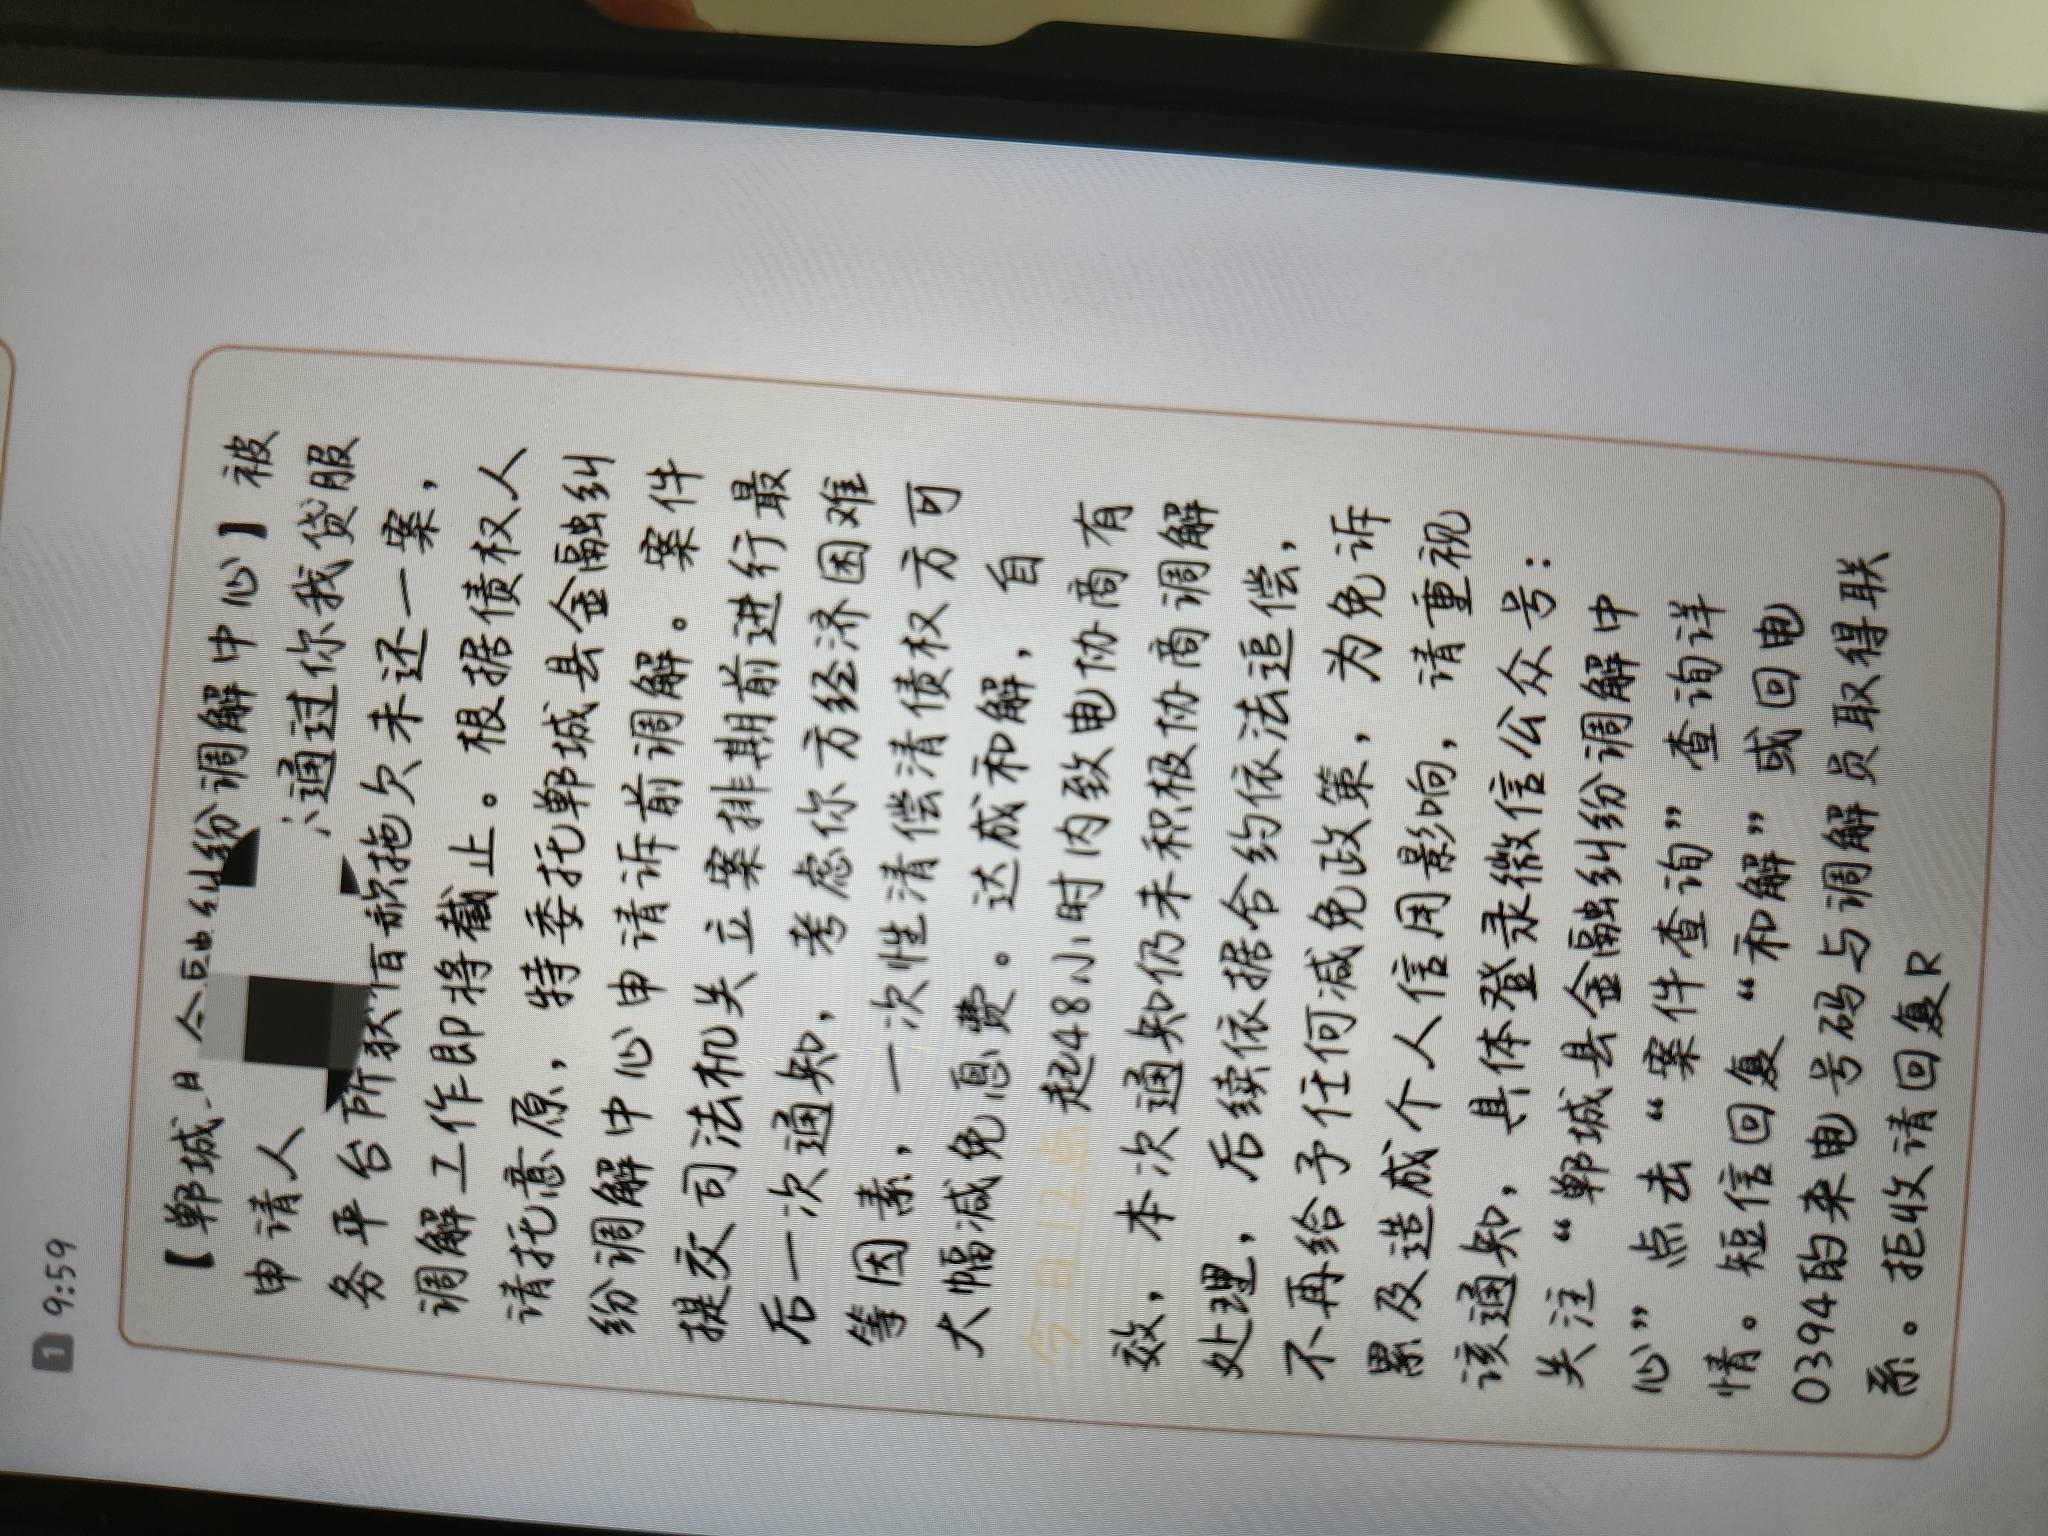 1 9:59
【郸城县金融纠纷调解中心】被
申请人 通过你我贷服
务平台所获有款拖欠未还一案，
调解工作即将截止。根据债权人
请托意原，特委托郸城县金融纠
纷调解中心申请诉前调解。案件
提交司法机关立案排期前进行最
后一次通知，考虑你方经济困难
等因素，一次性清偿清债权方可
大幅减免息费。达成和解，自
今日12点起48小时内致电协商有
效，本次通知仍未积极协商调解
处理，后续依据合约依法追偿，
不再给予任何减免政策，为免诉
累及造成个人信用影响，请重视
该通知，具体登录微信公众号：
关注“郸城县金融纠纷调解中
心”点击“案件查询”查询详
情。短信回复“和解”或回电
0394的来电号码与调解员取得联
系。拒收请回复R